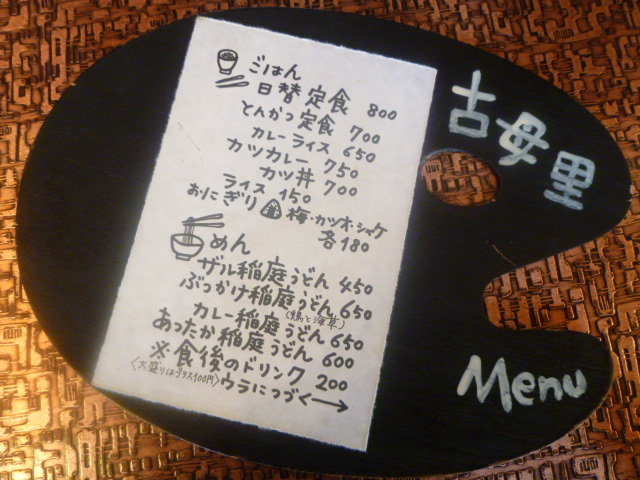 ごはん
日替定食 800
とんかつ定食 700
カレーライス 650
カツカレー 750
カツ丼 700
ライス 150
おにぎり 梅・カツオ・シャケ
各180
めん
ザル稲庭うどん 450
ぶっかけ稲庭うどん 650
カレー稲庭うどん 650
あったか稲庭うどん 600
※食後のドリンク 200
<大盛りはプラス100円>ウラにつづく→
古母里
Menu